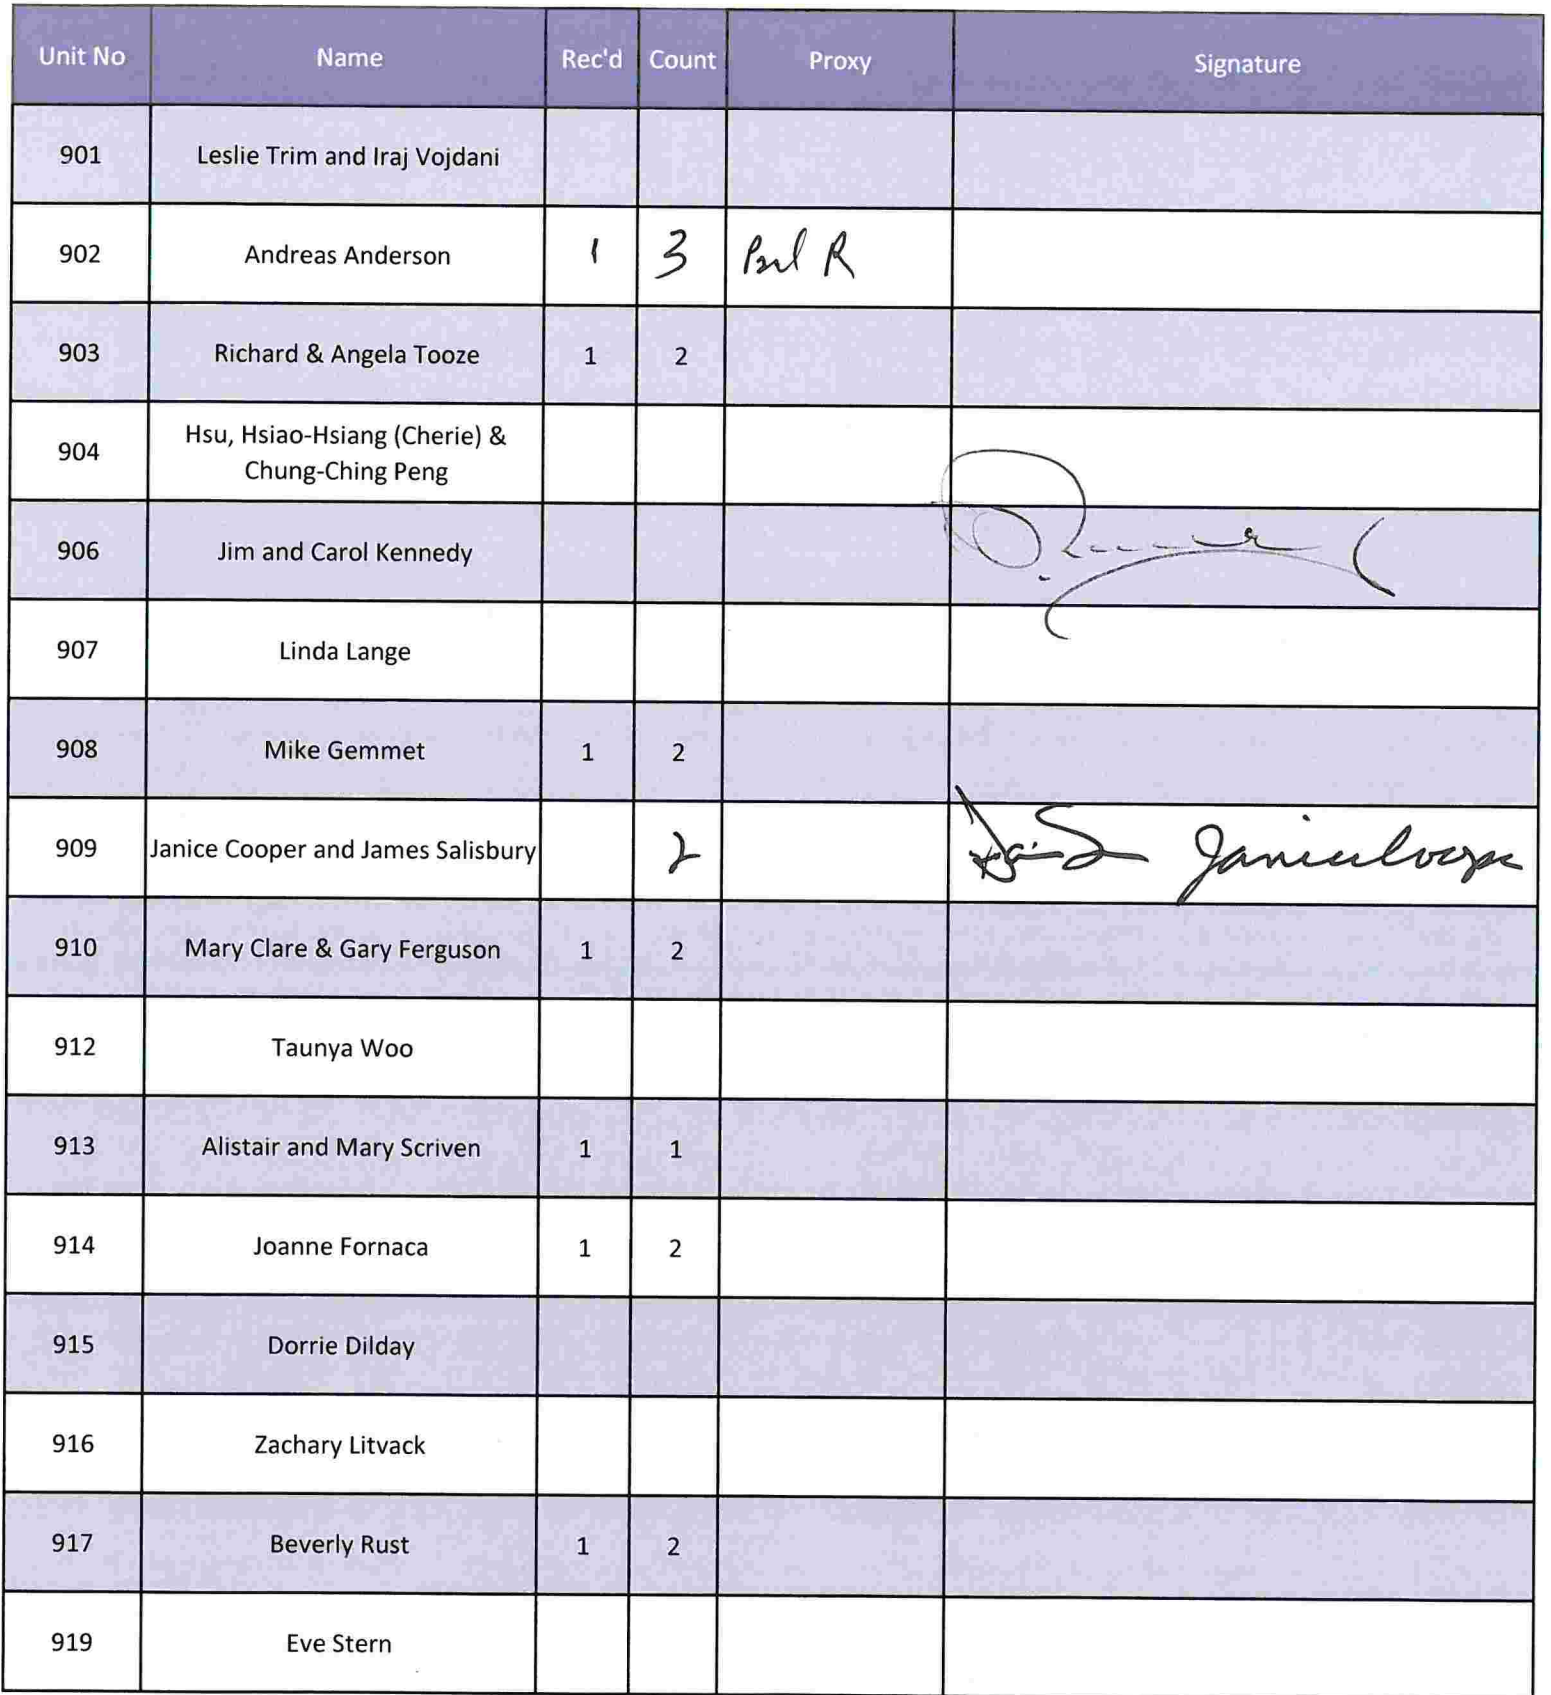 Unit No Name Rec'd Count Proxy Signature
901 Leslie Trim and Iraj Vojdani
902 Andreas Anderson 1 3 R
903 Richard & Angela Tooze 1 2
904 Hsu, Hsiao-Hsiang (Cherie) &
Chung-Ching Peng
906 Jim and Carol Kennedy
907 Linda Lange
908 Mike Gemmet 1 2
909 Janice Cooper and James Salisbury 2 Janice Cooper
910 Mary Clare & Gary Ferguson 1 2
912 Taunya Woo
913 Alistair and Mary Scriven 1 1
914 Joanne Fornaca 1 2
915 Dorrie Dilday
916 Zachary Litvack
917 Beverly Rust 1 2
919 Eve Stern